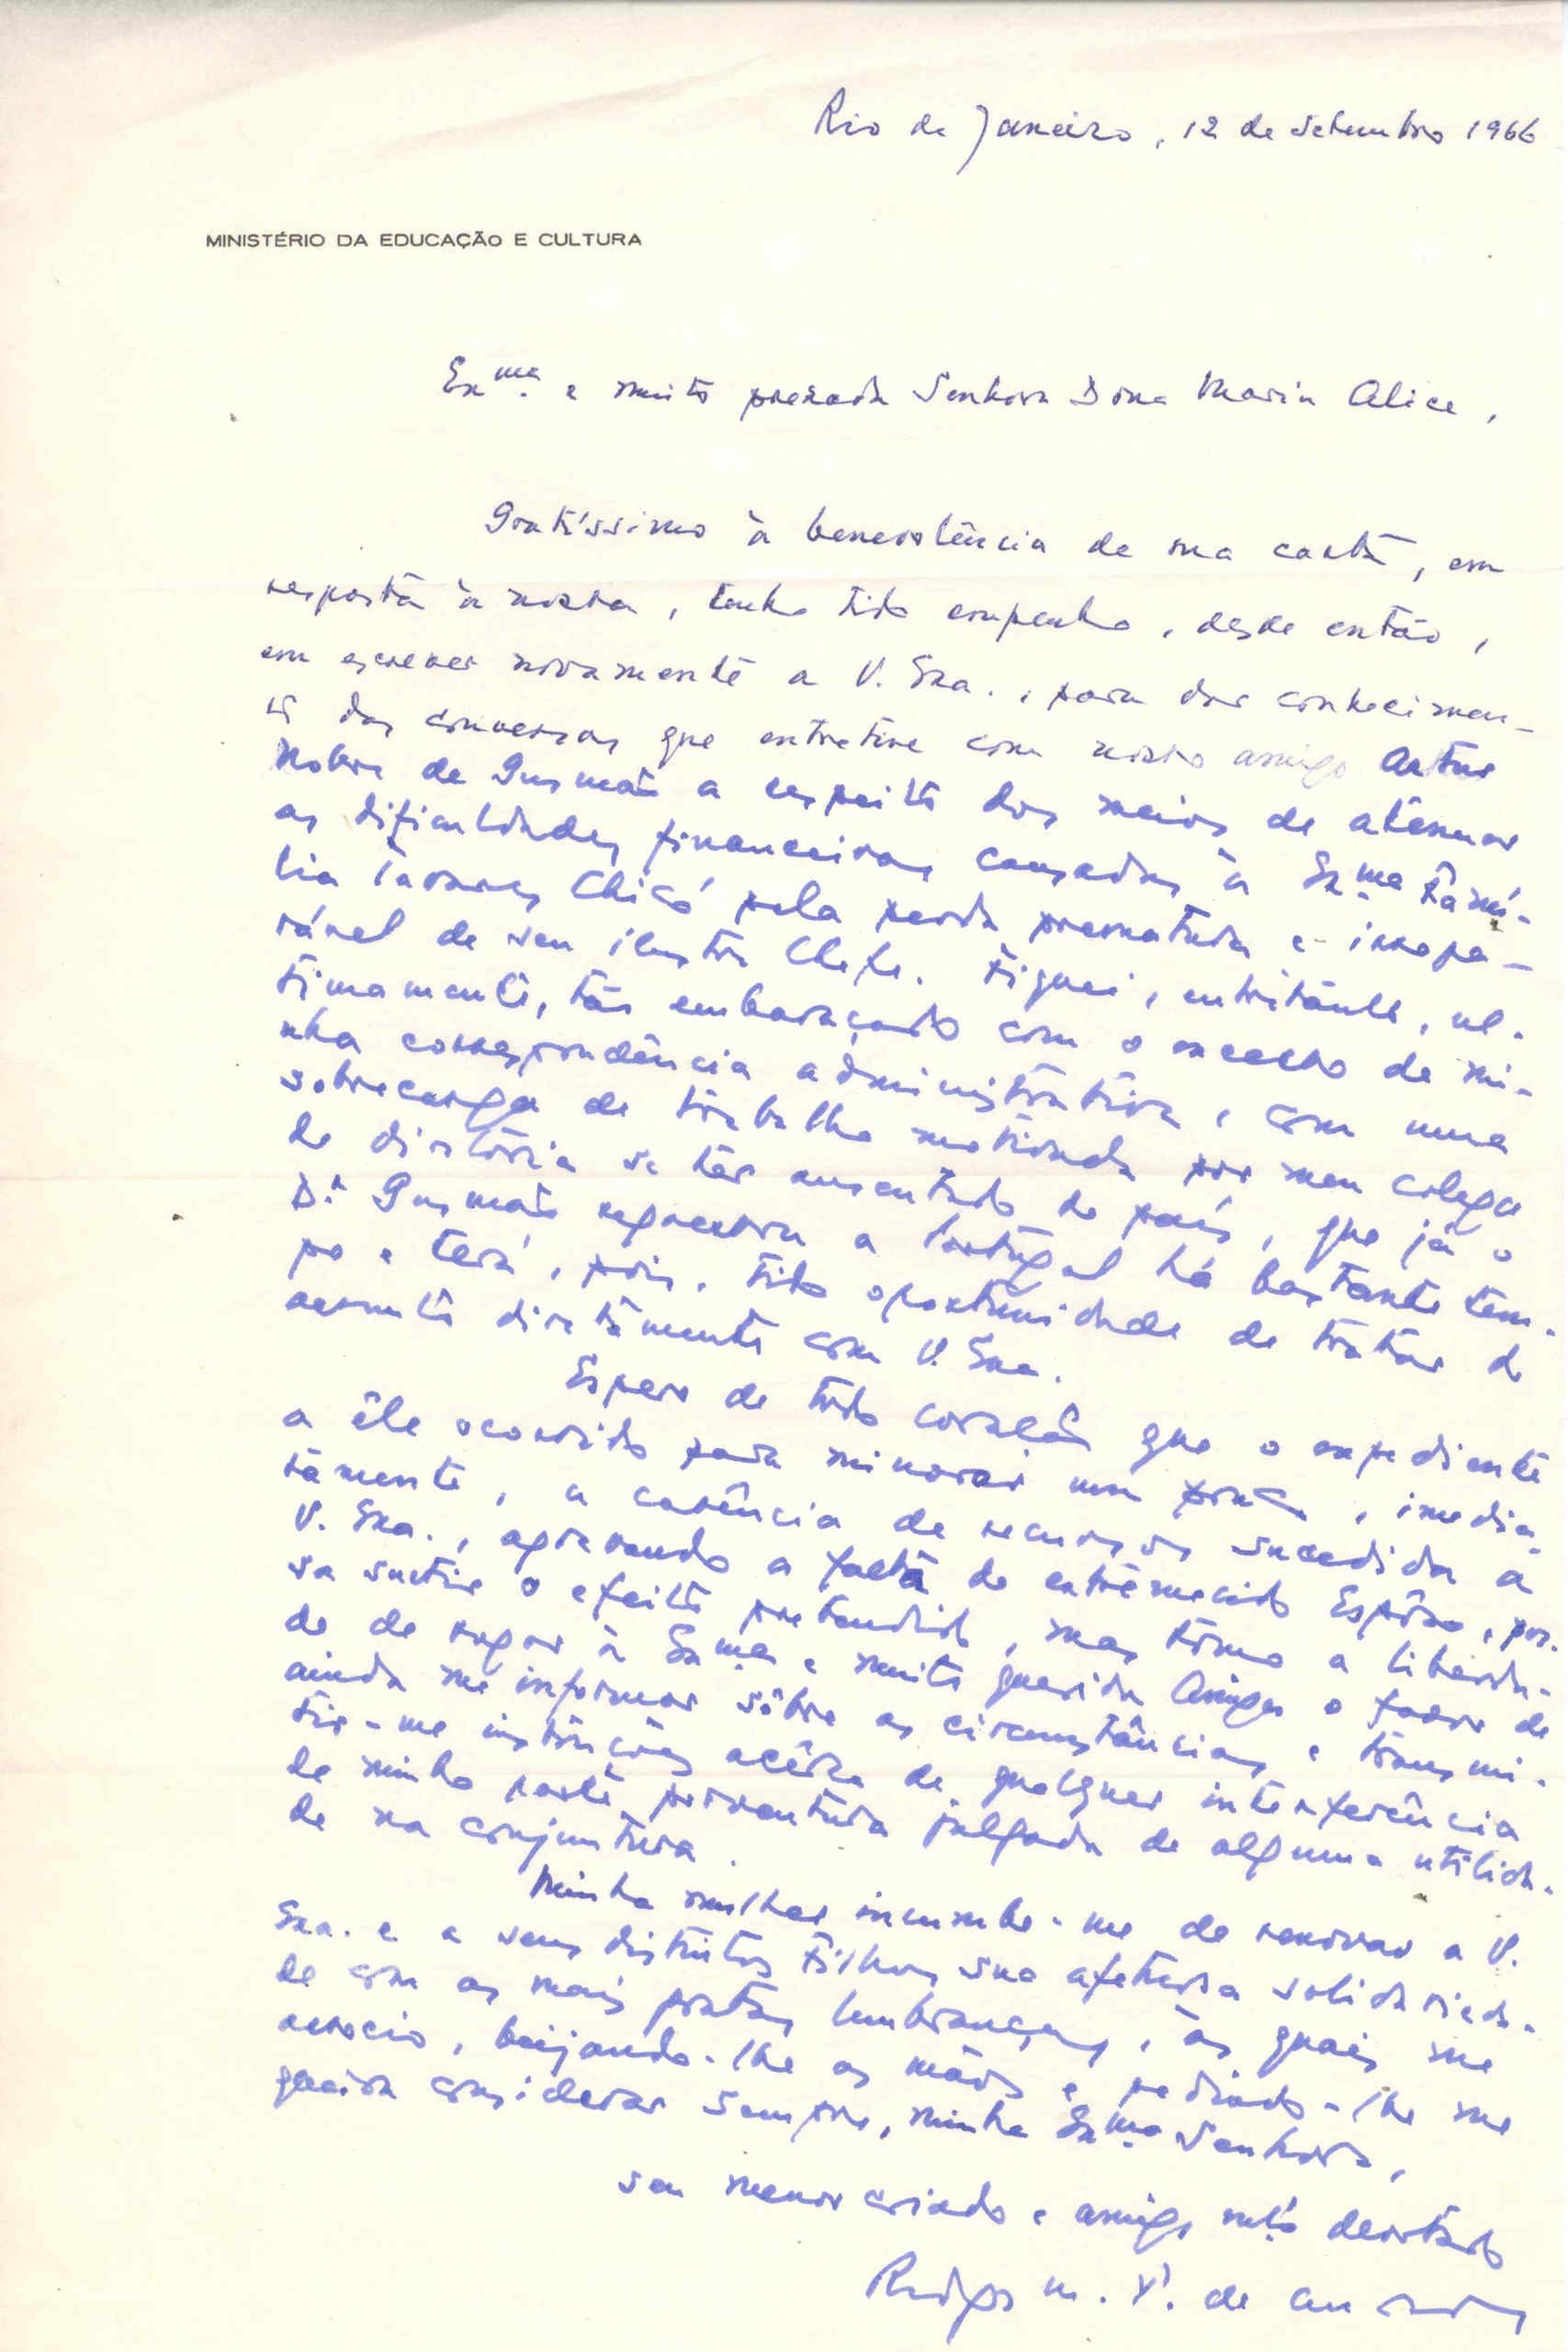 Rio de Janeiro, 12 de Setembro 1966
MINISTÉRIO DA EDUCAÇÃO E CULTURA
Exma. e muito prezada Senhora Dona Maria Alice,
Gratíssimo à benevolência de sua carta, em
resposta à nossa, tenho tido empenho, desde então,
em escrever novamente a V. Exa., para dar conhecimen-
to das conversas que entretive com nosso amigo Artur
Nobre de Gusmão a respeito dos meios de atenuar
as dificuldades financeiras causadas à Exma. Famí-
lia Tavares Chicó pela perda prematura e irrepa-
rável de seu ilustre Chefe. Fiquei, entretanto, ul-
timamente, tão embaraçado com o excesso de mi-
nha correspondência administrativa, com uma
sobrecarga de trabalho motivada por meu colega
de diretoria se ter ausentado do país, que já o
Dr. Gusmão regressou a Portugal há bastante tem-
po e terá, pois, tido oportunidade de tratar do
assunto diretamente com V. Exa.
Espero de todo coração que o expediente
a êle ocorrido para minorar um pouco, imedia-
tamente, a carência de recursos sucedida a
V. Exa., agravando a falta do extremecido Espôso, pos-
sa surtir o efeito pretendido, mas tomo a liberda-
de de rogar à Exma. e muito querida Amiga o favor de
ainda me informar sôbre as circunstâncias e transmi-
tir-me instruções acêrca de qualquer interferência
de minha parte, porventura julgada de alguma utilida-
de na conjuntura.
Minha mulher incumbe-me de renovar a V.
Exa. e a seus distintos Filhos sua afetuosa solidarieda-
de com as mais gratas lembranças, às quais me
associo, beijando-lhe as mãos e pedindo-lhe me
queira considerar sempre, minha Exma. Senhora,
seu menor criado e amigo mto. devotado
Rodrigo M. F. de Andrade